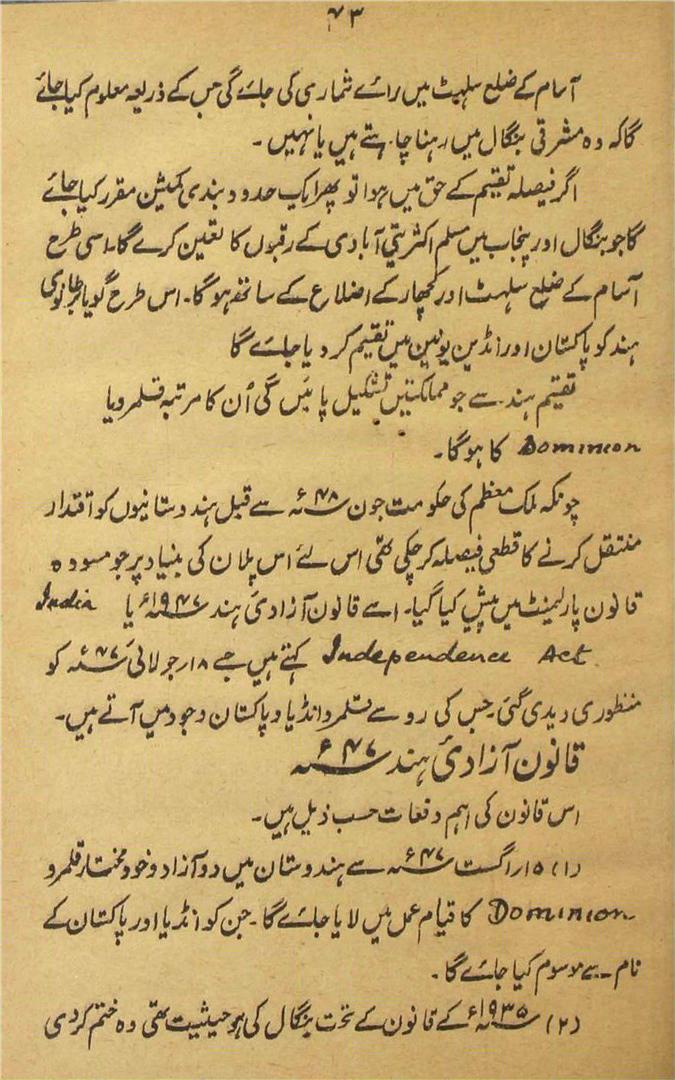 ۷۳
آسام کے ضلع سلہٹ میں رائے شماری کی جائے گی جس کے ذریعہ معلوم کیا جائے
گا کہ وہ مشرقی بنگال میں رہنا چاہتے ہیں یا نہیں ۔
اگر فیصلہ تقیم کے حق میں ہوا تو پھر ایک حدود بندی کمیشن مقرر کیا جائے
گا جو بنگال اور پنجاب میں مسلم اکثریتی آبادی کے رقبوں کا تعین کرے گا۔ اسی طرح
آسام کے ضلع سلہٹ اور کچھار کے اضلاع کے ساتھ ہوگا۔ اس طرح گویا برطانوی
ہند کو پاکستان اور انڈین یونین میں تقیم کر دیا جائے گا
تقیم ہند سے جو مملکتیں تشکیل پائیں گی اُن کا مرتبہ قلمرو یا
Dominion کا ہوگا۔
چونکہ ملک معظم کی حکومت جون ۴۸ء سے قبل ہندوستانیوں کو اقتدار
منتقل کرنے کا قطعی فیصلہ کر چکی تھی اس لئے اس پلان کی بنیاد پر جو مسودہ
قانون پارلیمنٹ میں پیش کیا گیا۔ اسے قانون آزادیٔ ہند ۱۹۴۷ء یا India
Independence Act کہتے ہیں جسے ۱۸ر جولائی ۴۷ء کو
منظوری دیدی گئی۔ جس کی رو سے قلمرو انڈیا و پاکستان وجود میں آتے ہیں۔
قانون آزادیٔ ہند ۴۷ء
اس قانون کی اہم دفعات حسب ذیل ہیں۔
(۱) ۱۵ر اگست ۴۷ء سے ہندوستان میں دو آزاد و خود مختار قلمرو
Dominion کا قیام عمل میں لایا جائے گا۔ جن کو انڈیا اور پاکستان کے
نام سے موسوم کیا جائے گا ۔
(۲) ۱۹۳۵ء کے قانون کے تحت بنگال کی جو حیثیت تھی وہ ختم کر دی